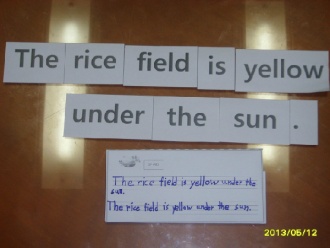 The rice field is yellow
under the sun .
The rice field is yellow under the
sun.
The rice field is yellow under the sun.
2013/05/12